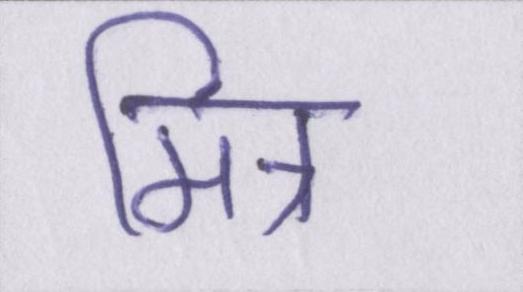 मित्र